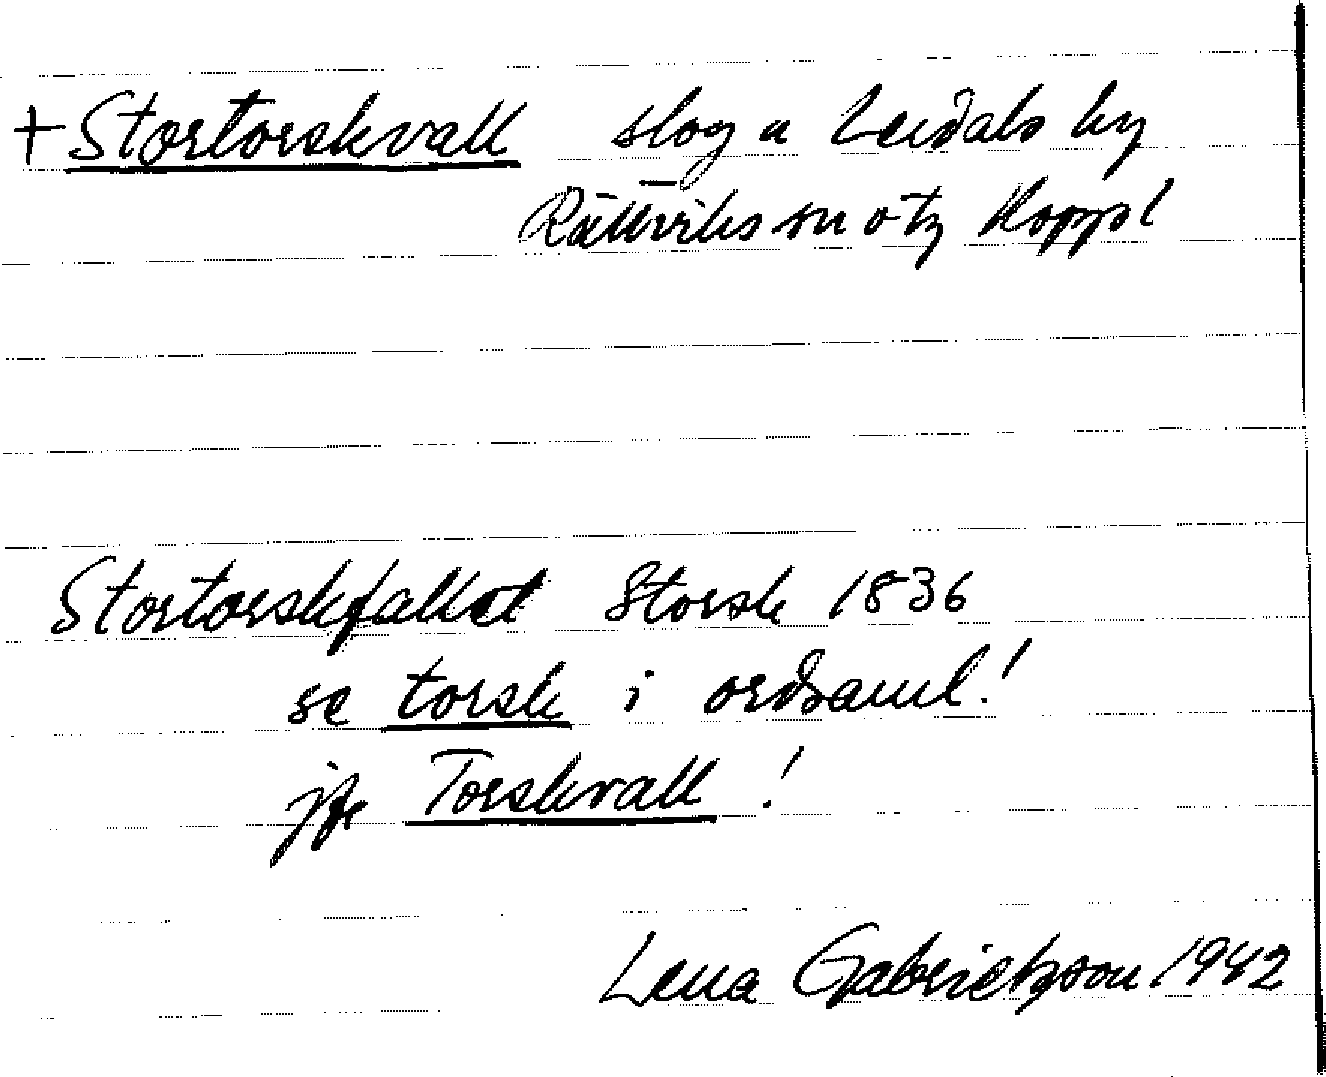 + Stortorskvall slog u Leidals by
Rättviks sn o tg Koppl
Stortorskfallet Storsk 1836
se torsk i ordsaml!
jfr Torskvall !
Lena Gabrielsson 1942